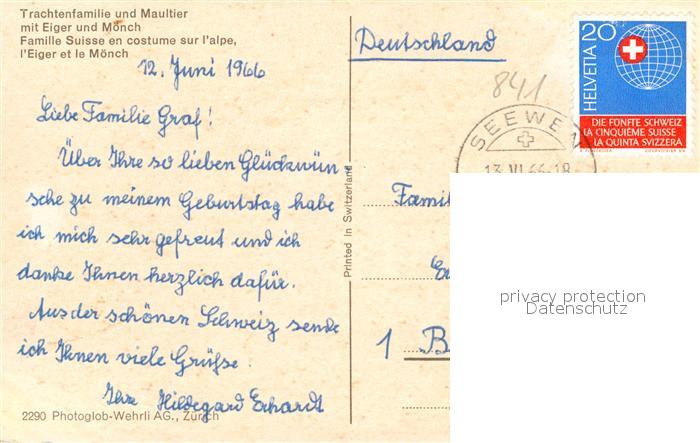 Trachtenfamilie und Maultier
mit Eiger und Mönch
Famille Suisse en costume sur l'alpe,
l'Eiger et le Mönch
12. Juni 1966
Liebe Familie Graf!
Über Ihre so lieben Glückwün
sche zu meinem Geburtstag habe
ich mich sehr gefreut und ich
danke Ihnen herzlich dafür.
Aus der schönen Schweiz sende
ich Ihnen viele Grüße.
Ihre Hildegard Erhardt
2290 Photoglob-Wehrli AG., Zürich
Printed in Switzerland
Deutschland
841
HELVETIA 20
DIE FÜNFTE SCHWEIZ
LA CINQUIÈME SUISSE
LA QUINTA SVIZZERA
SEEWEN
13.VI.66-18
Famil
1 B
privacy protection
Datenschutz